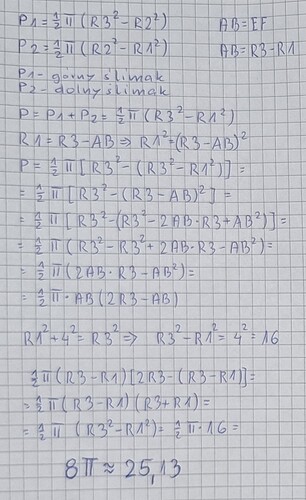 P1 = 1/2 π (R3² - R2²) AB = EF
P2 = 1/2 π (R2² - R1²) AB = R3 - R1
P1 - górny ślimak
P2 - dolny ślimak
P = P1 + P2 = 1/2 π (R3² - R1²)
R1 = R3 - AB ⇒ R1² = (R3 - AB)²
P = 1/2 π [R3² - (R3² - R1²)] =
= 1/2 π [R3² - (R3 - AB)²] =
= 1/2 π [R3² - (R3² - 2AB·R3 + AB²)] =
= 1/2 π (R3² - R3² + 2AB·R3 - AB²) =
= 1/2 π (2AB·R3 - AB²) =
= 1/2 π · AB (2R3 - AB)
R1² + 4² = R3² ⇒ R3² - R1² = 4² = 16
1/2 π (R3 - R1) [2R3 - (R3 - R1)] =
= 1/2 π (R3 - R1) (R3 + R1) =
= 1/2 π (R3² - R1²) = 1/2 π · 16 =
8π ≈ 25,13